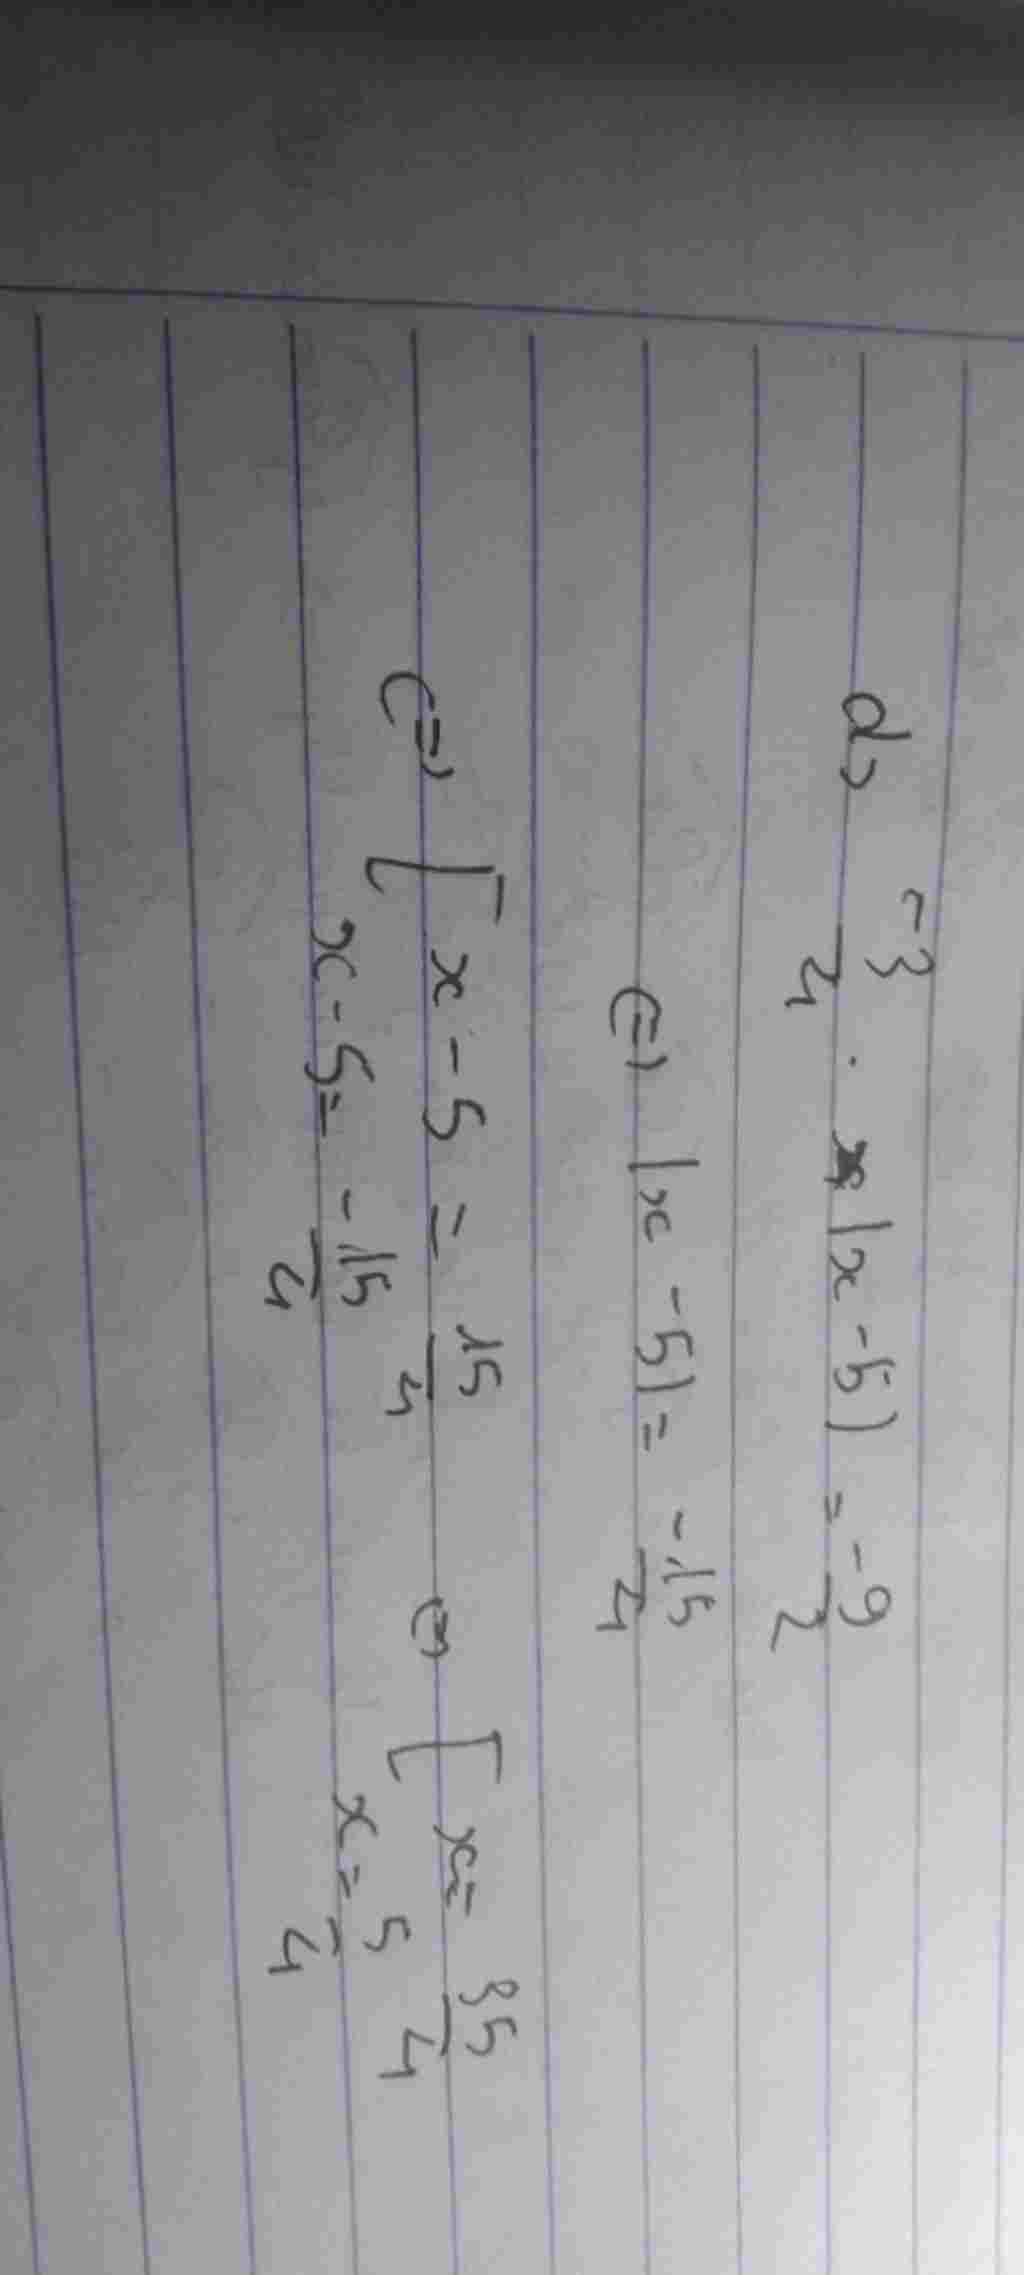 d) -3/4 . |x - 5| = -9/2
<=> |x - 5| = -15/4
<=> [ x - 5 = 15/4 <=> [ x = 35/4
x - 5 = -15/4 x = 5/4